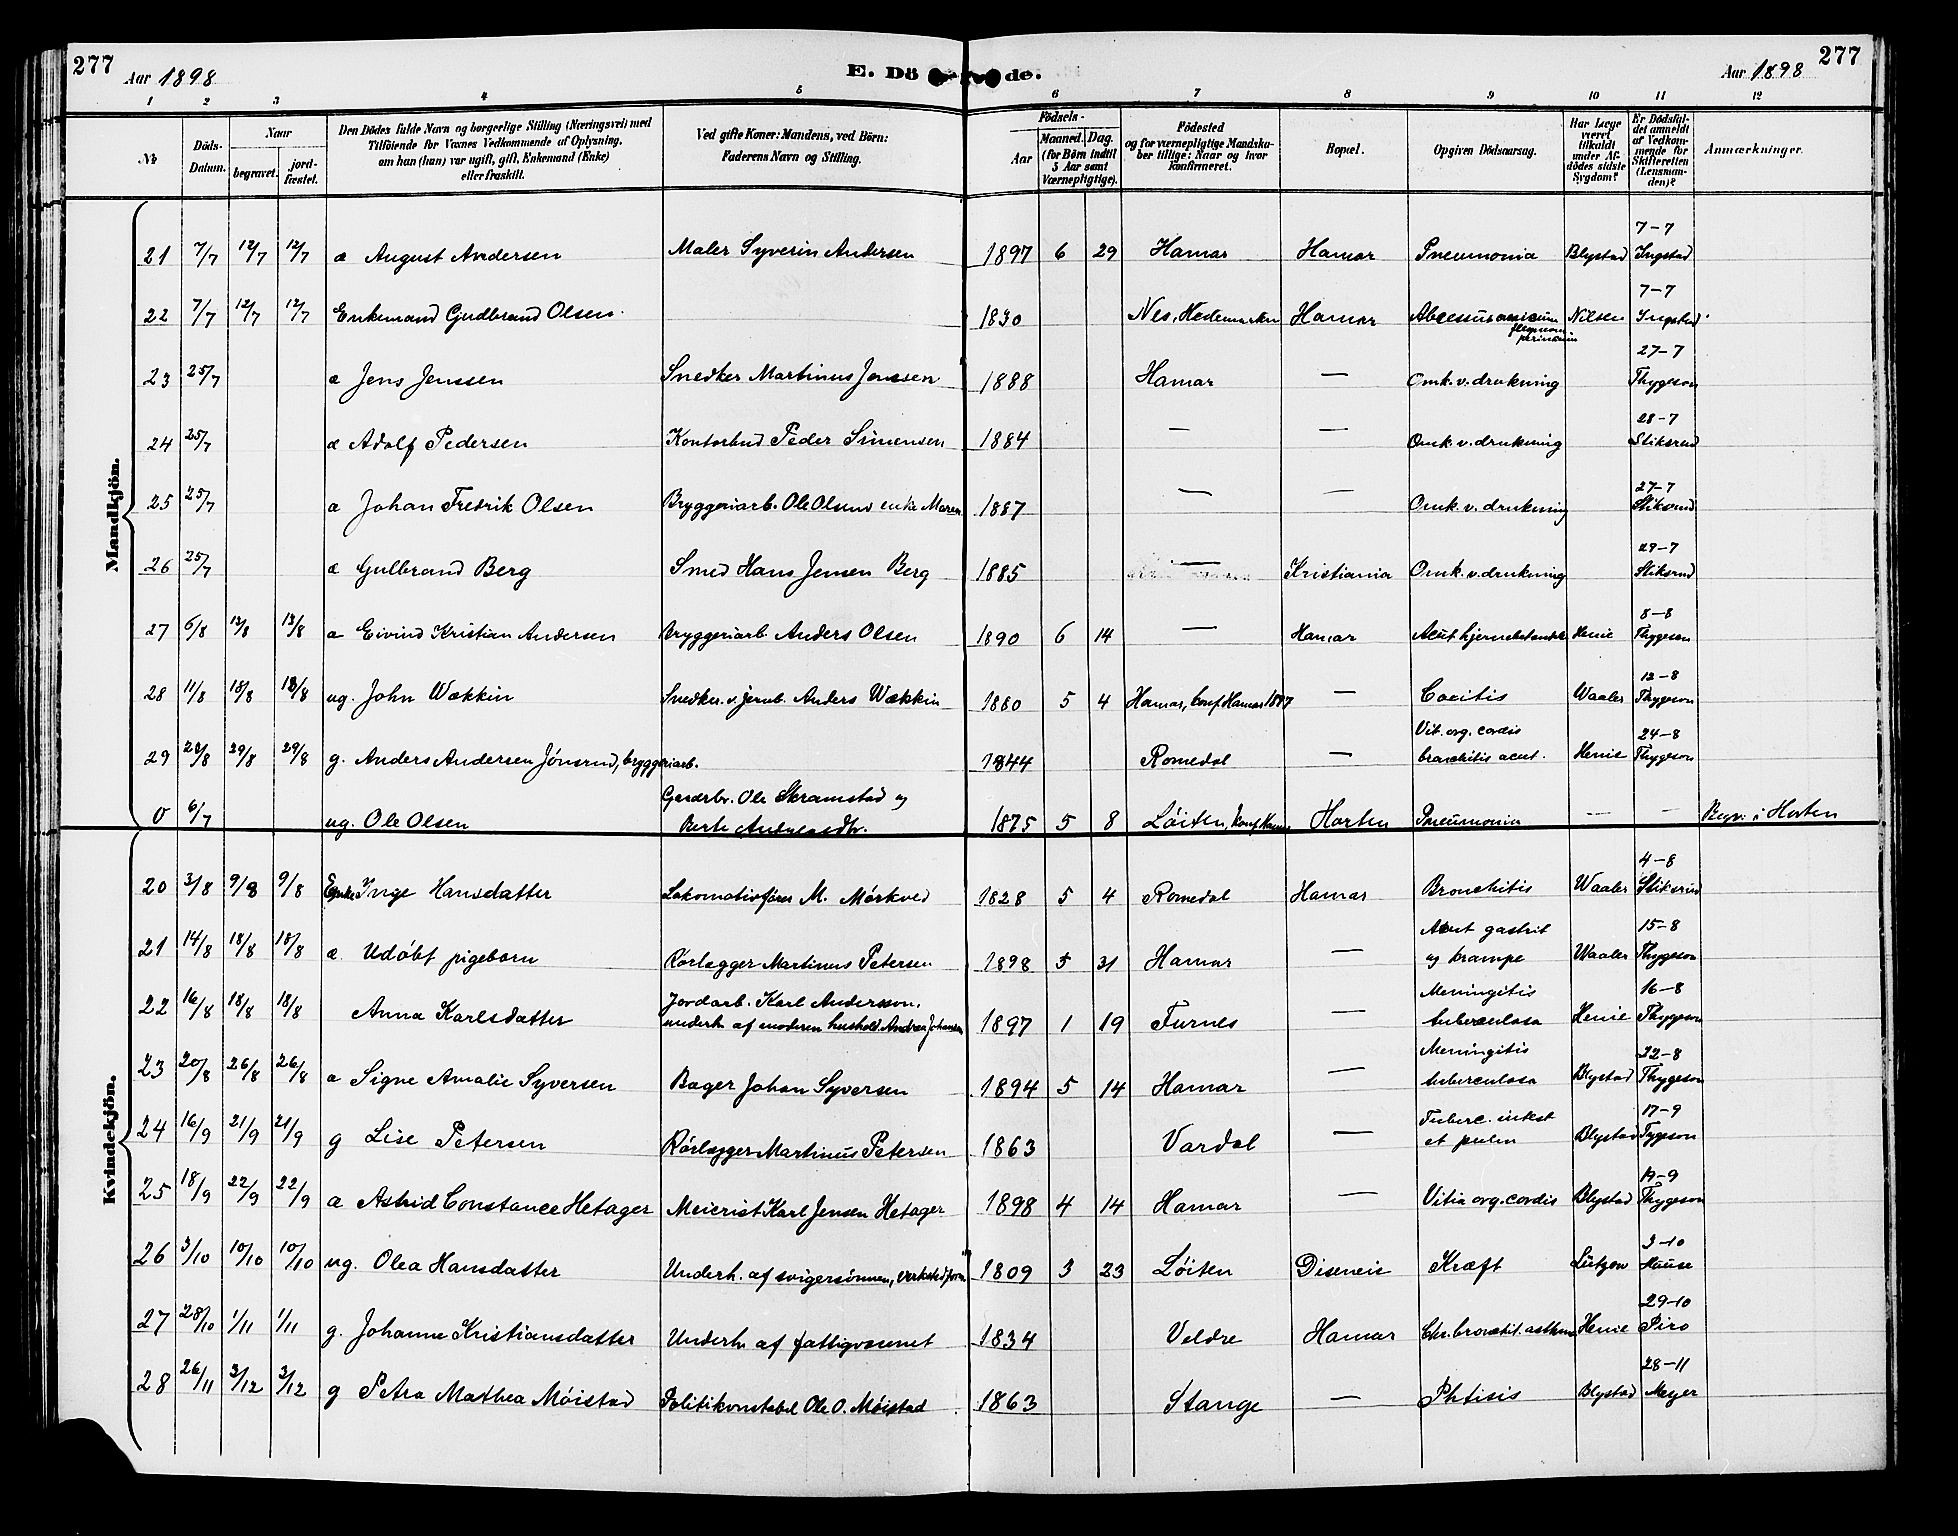 277
Aar 1898
E. Dö de.
Aar 1898
277
1 2 3 4 5 6 7 8 9 10 11 12
No
Döds-
Datum.
Naar
begravet.
jord-
fæstet.
Den Dödes fulde Navn og borgerlige Stilling (Næringsvei) med
Tilföiende for Voxnes Vedkommende af Oplysning,
om han (hun) var ugift, gift, Enkemand (Enke)
eller fraskilt.
Ved gifte Koner: Mandens, ved Börn:
Faderens Navn og Stilling.
Födsels-
Aar
Maaned. Dag.
(for Börn indtil
5 Aar samt
Værnepligtige).
Födested
og for værnepligtige Mandska-
ber tillige: Naar og hvor
konfirmeret.
Bopæl.
Opgiven Dödsaarsag.
Har Læge
været
tilkaldt
under Af-
dödes sidste
Sygdom?
Er Dödsfal-
det anmeldt
af Vedkom-
mende for
Skifteretten
(Lensman-
den)?
Anmærkninger.
Mandkjön.
21 7/7 12/7 12/7 æ August Andersen Maler Syverin Andersen 1897 6 29 Hamar Hamar Pneumonia Blystad 7-7 Ingstad
22 7/7 12/7 12/7 Enkemand Gudbrand Olsen. 1830 Nes, Hedemarken Hamar Abcessus Nilsen 7-7 Ingstad
23 25/7 æ Jens Jenssen Snedker Martinus Jenssen 1888 Hamar — Omk. v. drukning 27-7 Thygeson
24 25/7 æ Adolf Pedersen Kontorbud Peder Simensen 1884 — — Omk. v. drukning 28-7 Stiksrud
25 25/7 æ Johan Fredrik Olsen Bryggeriarb. Ole Olsens enke Maren 1887 — — Omk. v. drukning 27-7 Stiksrud
26 25/7 æ Gulbrand Berg Smed Hans Jensen Berg 1885 — Kristiania Omk. v. drukning 29-7 Stiksrud
27 6/8 13/8 13/8 æ Eivind Kristian Andersen Bryggeriarb. Anders Olsen 1890 6 14 — Hamar Acut Henie 8-8 Thygeson
28 11/8 18/8 18/8 ug. John Wækkin Snedker v. jernb. Anders Wækkin 1880 5 4 Hamar, konf Hamar — Coxitis Waaler 12-8 Thygeson
29 /8 29/8 29/8 g. Anders Andersen Jönsrud, bryggeriarb. 1844 Romedal — Vit. org. cordis
bronchitis acut. Henie 24-8 Thygeson
0 6/7 ug. Ole Olsen Gaardbr. Ole Skramstad og
Berte 1875 5 8 Löiten, konf Horten Pneumonia — — Begr. i Horten
Kvindekjön.
20 3/8 9/8 9/8 Enke Inge Hansdatter Lokomotivförer M. Mörkved 1828 5 4 Romedal Hamar Bronchitis Waaler 4-8 Stiksrud
21 14/8 18/8 18/8 æ. Udöbt pigebarn Rörlægger Martinus Petersen 1898 5 31 Hamar — Akut gastrit
og krampe Waaler 15-8 Thygeson
22 16/8 18/8 18/8 Anna Karlsdatter Jordarb. Karl Anderson,
underh. af moderen hushold. Andrea Johansen 1897 1 19 Furnes — Meningitis
tuberculosa Henie 16-8 Thygeson
23 20/8 26/8 26/8 æ Signe Amalie Syversen Bager Johan Syversen 1894 5 14 Hamar — Meningitis
tuberculosa Blystad 22-8 Thygeson
24 16/9 21/9 21/9 g Lise Petersen Rörlægger Martinus Petersen 1863 Vardal — Tuberc. intest
et pulm Blystad 17-9 Tygeson
25 18/9 22/9 22/9 æ Astrid Constance Hetager Meierist Karl Jensen Hetager 1898 4 14 Hamar — Vitia org. cordis Blystad 19-9 Thygeson
26 3/10 10/10 10/10 ug. Olea Hansdatter Underh. af svigersönnen, verkstedform 1809 3 23 Löiten Diseneis Kræft Lützow 3-10
27 28/10 1/11 1/11 g. Johanne Kristiansdatter Underh af fattigvæsenet 1834 Veldre Hamar Chr. bronchit. asthma Henie 29-10 Piro
28 26/11 3/12 3/12 g Petra Mathea Möistad Politikonstabel Ole O. Möistad 1863 Stange — Phtisis Blystad 28-11 Meyer